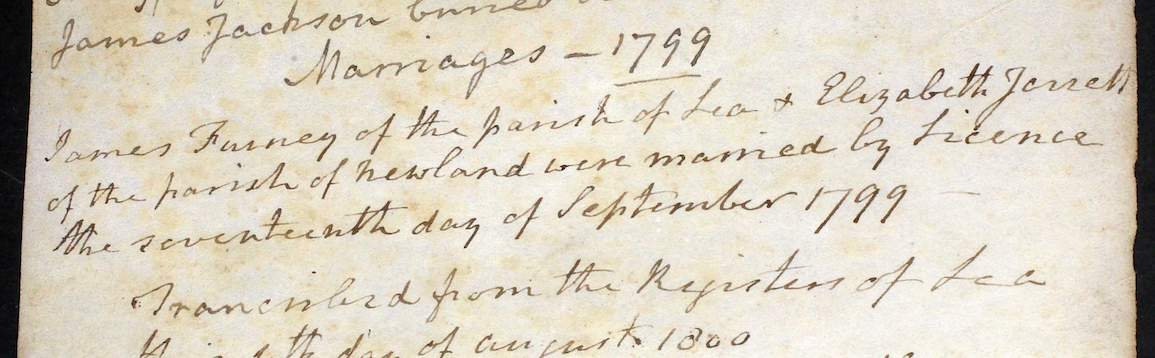 James Jackson buried
Marriages - 1799
James Furney of the parish of Lea & Elizabeth Jerrett
of the parish of Newland were married by Licence
the seventeenth day of September 1799 -
Transcribed from the Registers of Lea
day of august 1800